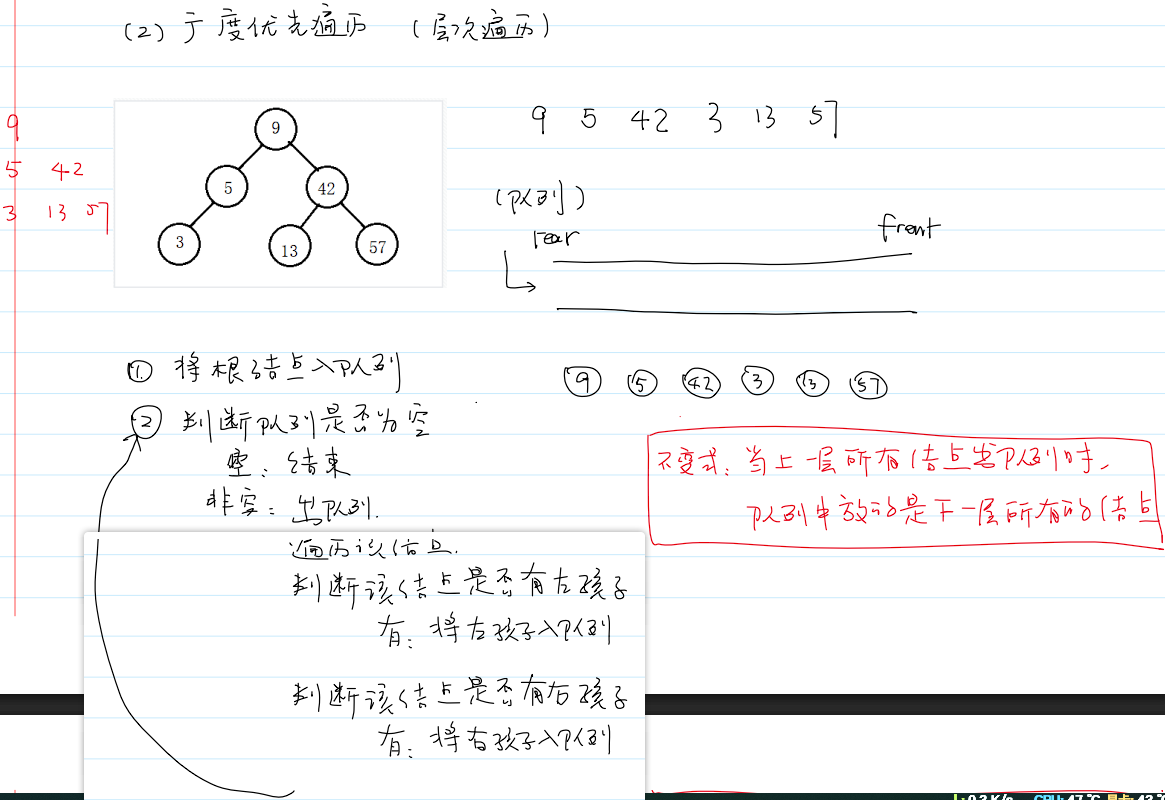 (2) 广度优先遍历 (层次遍历)
9
5 42
3 13 57
9
5 42
3 13 57
9 5 42 3 13 57
(队列)
rear front
① 将根结点入队列
9 5 42 3 13 57
② 判断队列是否为空
空：结束
非空：出队列.
遍历该结点.
判断该结点是否有左孩子
有：将左孩子入队列
判断该结点是否有右孩子
有：将右孩子入队列
不变式：当上一层所有结点出队列时,
队列中放的是下一层所有的结点